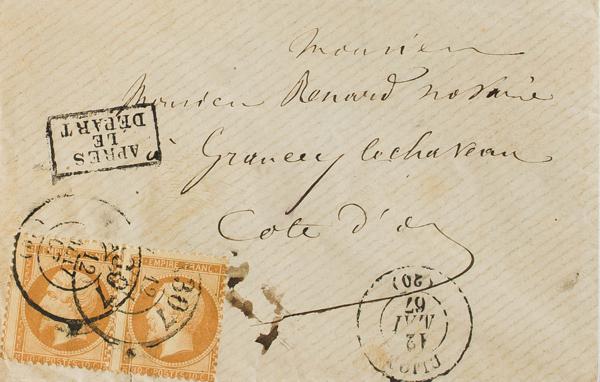 Monsieur
Monsieur Renard notaire
à Grancey le chateau
Cote d'or
APRÈS
LE
DÉPART
EMPIRE FRANC
DIJON
12
MAI
67
(20)